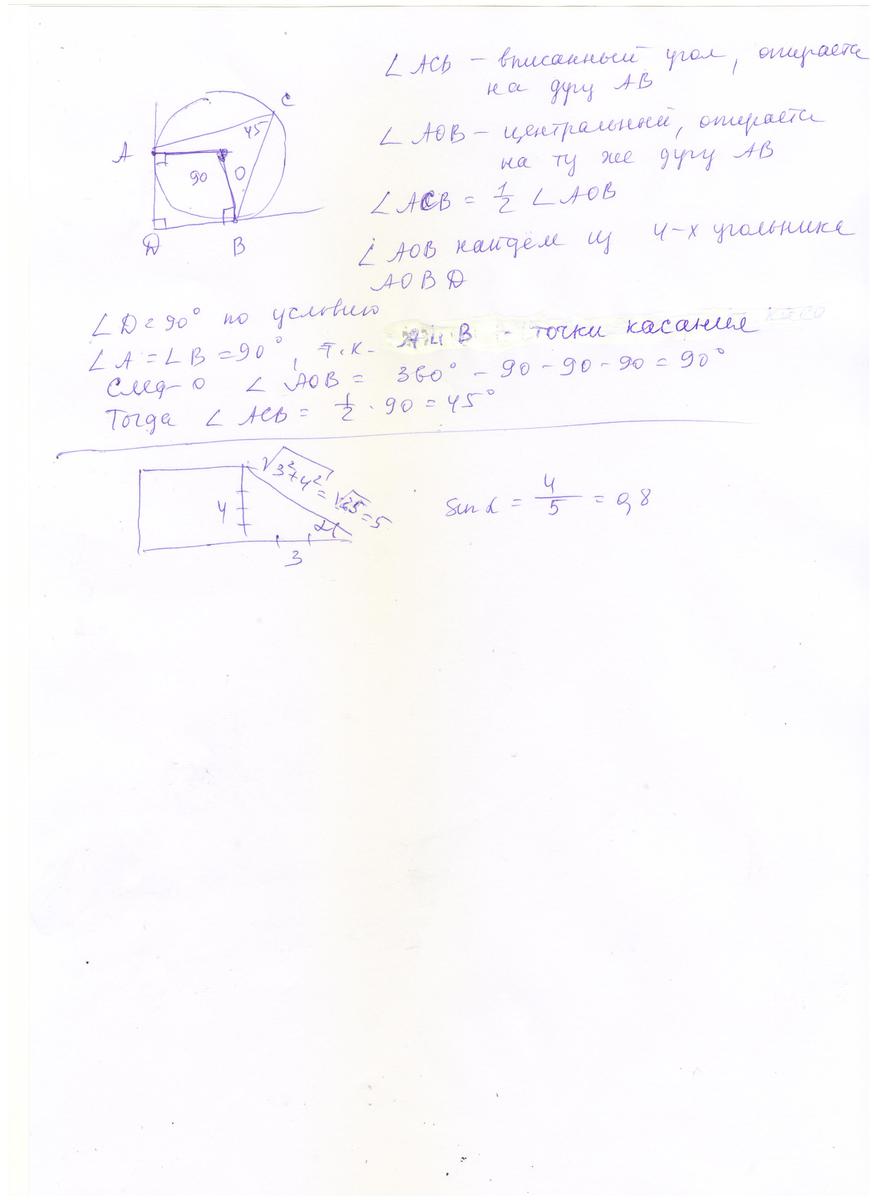 ∠ ACB – вписанный угол, опирается
на дугу AB
∠ AOB – центральный, опирается
на ту же дугу AB
∠ ACB = 1/2 ∠ AOB
∠ AOB найдём из 4-х угольника
AOBD
A
C
45
90
O
D
B
∠ D = 90° по условию
∠ A = ∠ B = 90°, т.к. A и B - точки касания
След-о ∠ AOB = 360° - 90 - 90 - 90 = 90°
Тогда ∠ ACB = 1/2 · 90 = 45°
√3²+4² = √25 = 5
4
α
3
sin α = 4/5 = 0,8